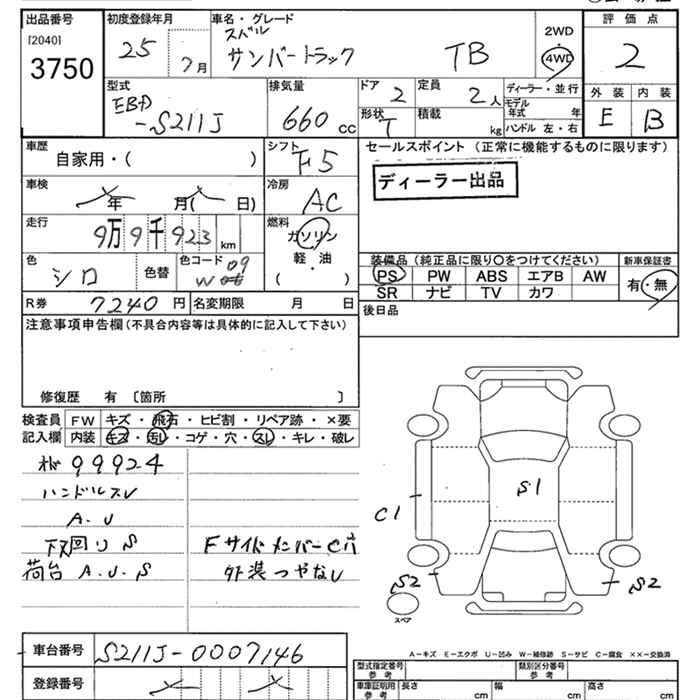 出品番号 初度登録年月 車名・グレード 評価点
[2040] スバル 2WD
3750 25 7月 サンバートラック TB 4WD 2
型式 排気量 ドア 2 定員 2人 ディーラー・並行 外装 内装
モデル年式 年
EBD-S211J 660cc 形状 T 積載 kg ハンドル 左・右 E B
車歴 シフト セールスポイント (正常に機能するものに限ります)
自家用・( ) F5
ディーラー出品
車検 年 月( 日) 冷房 AC
走行 9万9千923km 燃料 ガソリン
軽・油
・
( )
色 シロ 色替 色コード W 09
装備品 (純正品に限り○をつけてください) 新車保証書
PS PW ABS エアB AW 有・無
SR ナビ TV カワ
R券 7240円 名変期限 月 日
後日品
注意事項申告欄 (不具合内容等は具体的に記入して下さい)
修復歴 有 〔箇所 〕
検査員 FW キズ・飛石・ヒビ割・リペア跡・×要
記入欄 内装 キズ・汚レ・コゲ・穴・スレ・キレ・破レ
99924
ハンドルスレ
A.U
下回りS Fサイドメンバーc穴
荷台 A.U.S 外装つやなし
S1
C1
S2 S2
スペア
A－キズ E－エクボ U－凹み W－補修跡 S－サビ C－腐食 ××－交換済
車台番号 S211J-0007146
登録番号
型式指定番号 参考 類別区分番号 参考
車庫証明用 参考 長さ cm 幅 cm 高さ cm